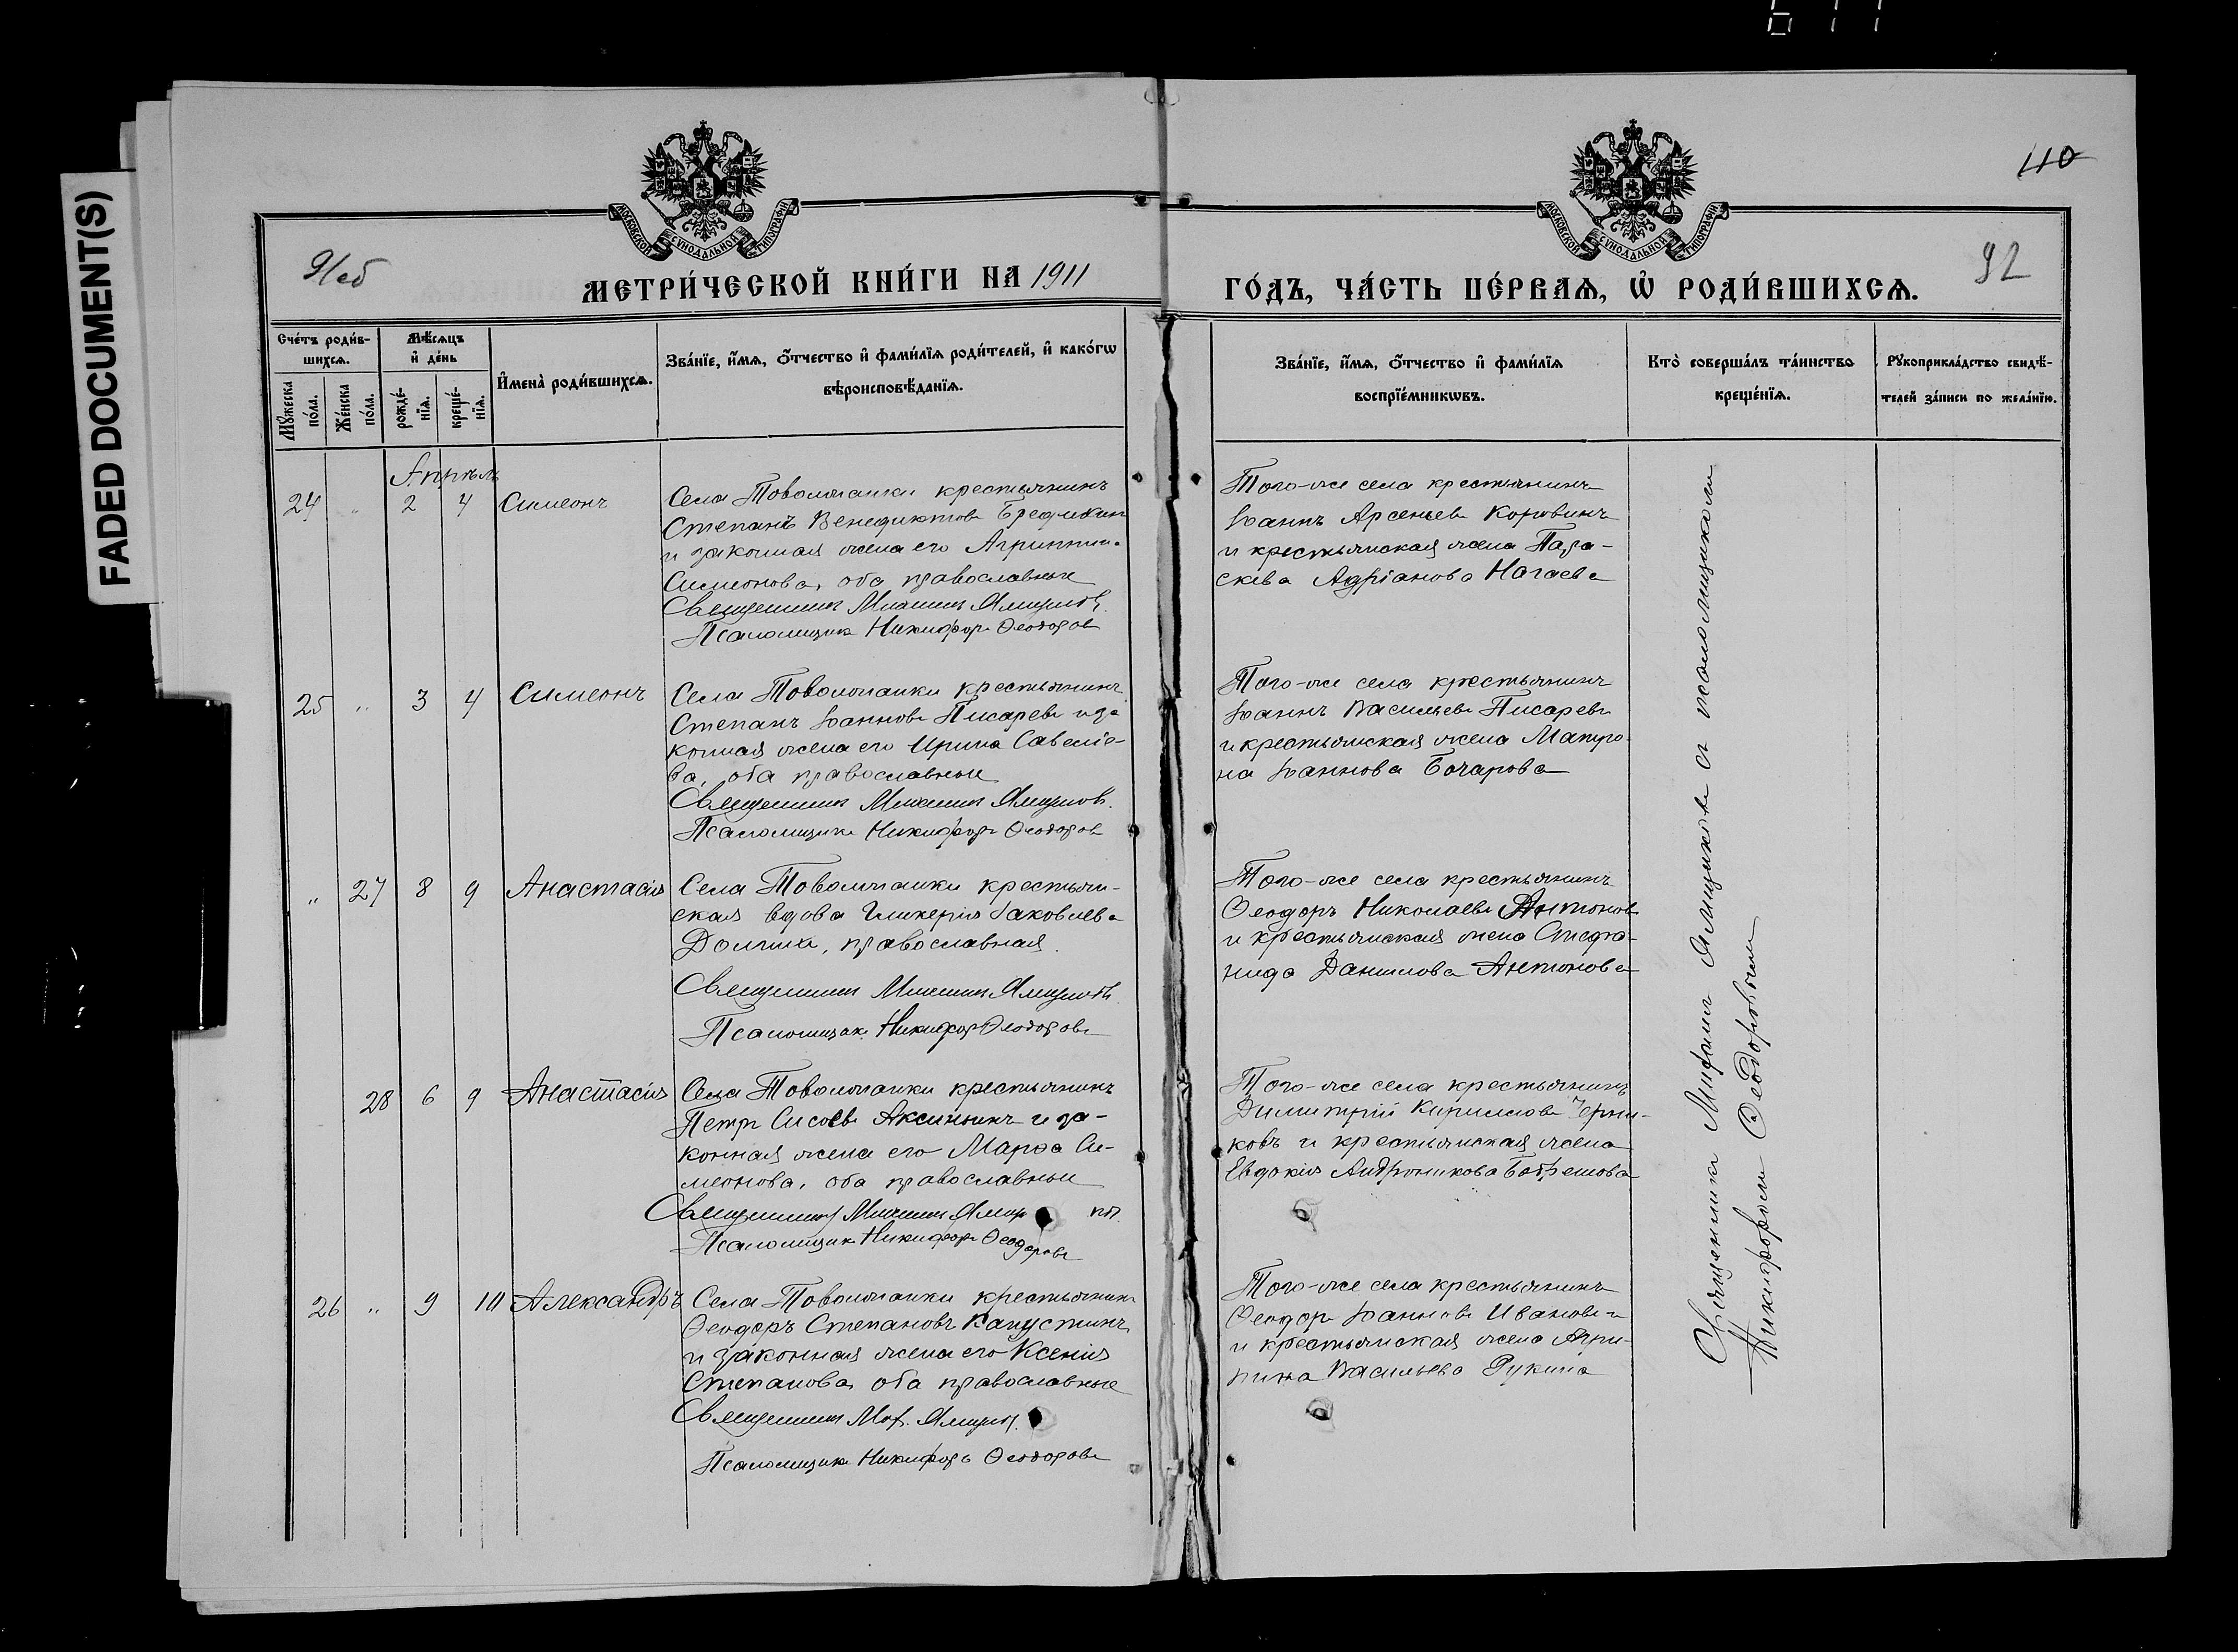 FADED DOCUMENT(S)
МОСКОВСКОЙ СѴНОДАЛЬНОЙ ТИПОГРАФІИ
МОСКОВСКОЙ СѴНОДАЛЬНОЙ ТИПОГРАФІИ
110
92
МЕТРИ́ЧЕСКОЙ КНИ́ГИ НА 1911
ГО́ДЪ, ЧА́СТЬ ПЕ́РВАѦ, Ѡ҆ РОДИ́ВШИХСѦ.
Сче́тъ роди́в-
шихсѧ.
Мꙋ́жеска по́ла.
Же́нска по́ла.
Мѣ́сѧцъ
и҆ де́нь
рожде́-
нїѧ.
креще́-
нїѧ.
И҆мена̀ роди́вшихсѧ.
Зва́нїе, и҆́мѧ, ѻ҆́тчество и҆ фами́лїѧ роди́телей, и҆ како́гѡ
вѣроисповѣ́данїѧ.
Зва́нїе, и҆́мѧ, ѻ҆́тчество и҆ фами́лїѧ
воспрїе́мникѡвъ.
Кто̀ соверша́лъ та́инство
креще́нїѧ.
Рꙋкоприкла́дство свидѣ́-
телей за́писи по жела́нїю.
Апрѣль
24 " 2 4 Симеонъ
Села Товолжанки крестьянинъ
Степанъ Венедиктовъ
и законная жена его Агриппина
Симеонова, оба православные
Священникъ Митрофанъ Ямщиковъ
Псаломщикъ Никифоръ Ѳеодоровъ
Того-же села крестьянинъ
Іоаннъ Арсеньевъ Коровинъ
и крестьянская жена Пара-
скева Адріанова Нагаева
25 " 3 4 Симеонъ
Села Товолжанки крестьянинъ
Степанъ Іоанновъ Писаревъ и за
конная жена его Ирина Савеліе-
ва, оба православные
Священникъ Митрофанъ Ямщиковъ.
Псаломщикъ Никифоръ Ѳеодоровъ
Того-же села крестьянинъ
Іоаннъ Васильевъ Писаревъ
и крестьянская жена Матро-
на Іоаннова Бочарова
" 27 8 9 Анастасія
Села Товолжанки крестьян-
ская вдова Гликерія Іаковлева
Долгихъ, православная.
Священникъ Митрофанъ Ямщиковъ
Псаломщикъ Никифоръ Ѳеодоровъ
Того-же села крестьянинъ
Ѳеодоръ Николаевъ Антоновъ
и крестьянская жена Стефа-
нида Данилова Антонова
28 6 9 Анастасія
Села Товолжанки крестьянинъ
Петръ Сисоевъ Аксининъ и за-
конная жена его Марѳа Си-
меонова, оба православные
Священникъ Митрофанъ
Псаломщикъ Никифоръ Ѳеодоровъ
Того-же села крестьянинъ
Димитрій Кирилловъ Черни-
ковъ и крестьянская жена
Евдокія Андроникова
26 " 9 10 Александръ
Села Товолжанки крестьянинъ
Ѳеодоръ Степановъ Капустинъ
и законная жена его Ксенія
Степанова, оба православные
Священникъ Мтф. Ямщиковъ.
Псаломщикъ Никифоръ Ѳеодоровъ
Того-же села крестьянинъ
Ѳеодоръ Іоанновъ Ивановъ
и крестьянская жена Агрип-
пина Васильева Рукина
Священникъ Митрофанъ Ямщиковъ съ псаломщикомъ
Никифоромъ Ѳеодоровымъ